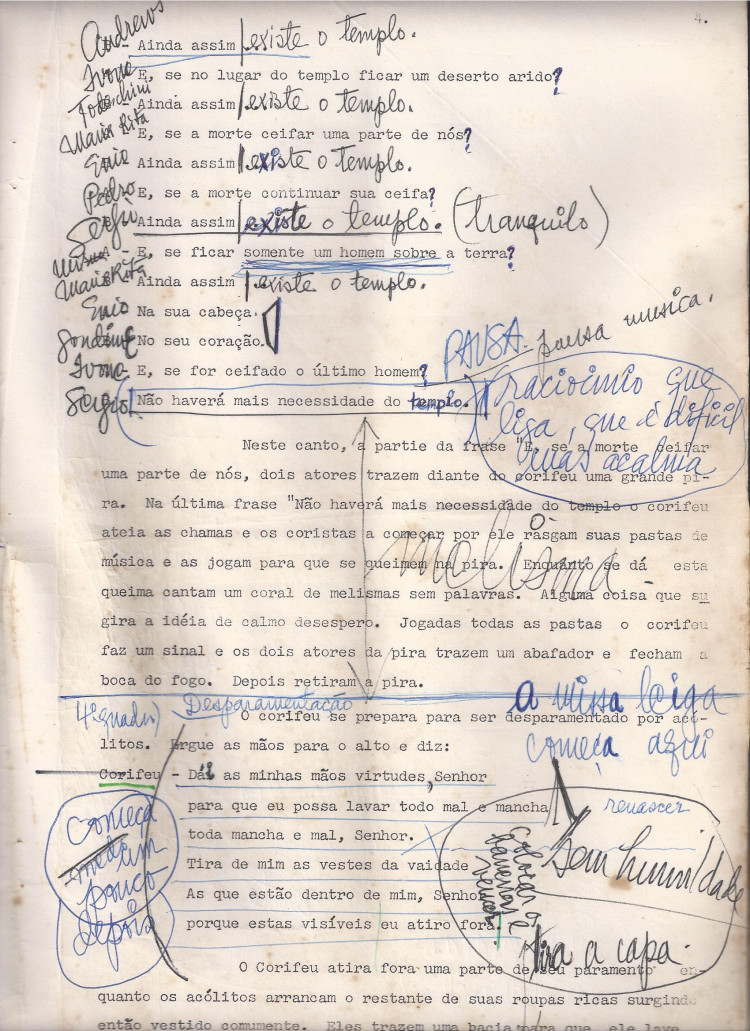 4.
Andrews - Ainda assim | existe o templo.
Ivone E, se no lugar do templo ficar um deserto arido?
Todeschini Ainda assim | existe o templo.
Maria Rita E, se a morte ceifar uma parte de nós?
Enio Ainda assim | existe o templo.
Pedro E, se a morte continuar sua ceifa?
Sergio Ainda assim | existe o templo. (tranquilo)
- E, se ficar somente um homem sobre a terra?
Maria Rita Ainda assim | existe o templo.
Enio Na sua cabeça.
No seu coração.
PAUSA - pausa musica.
Ivone - E, se for ceifado o último homem?
Sergio Não haverá mais necessidade do templo.
raciocinio que
liga, que é dificil
mas acalma
Neste canto, a partie da frase "E, se a morte ceifar
uma parte de nós, dois atores trazem diante do corifeu uma grande pi-
ra. Na última frase "Não haverá mais necessidade do templo o corifeu
ateia as chamas e os coristas a começar por ele rasgam suas pastas de
música e as jogam para que se queimem na pira. Enquanto se dá esta
melisma
queima cantam um coral de melismas sem palavras. Alguma coisa que su
gira a idéia de calmo desespero. Jogadas todas as pastas o corifeu
faz um sinal e os dois atores da pira trazem um abafador e fecham a
boca do fogo. Depois retiram a pira.
4º quadro) Desparamentação
a missa leiga
começa aqui
O corifeu se prepara para ser desparamentado por acó-
litos. Ergue as mãos para o alto e diz:
Corifeu - Dái as minhas mãos virtudes, Senhor
para que eu possa lavar todo mal e mancha
renascer
toda mancha e mal, Senhor.
Tira de mim as vestes da vaidade
As que estão dentro de mim, Senhor
porque estas visíveis eu atiro fora.
começa
um
pouco
depois
sem humildade
tira a capa.
O Corifeu atira fora uma parte de seu paramento en-
quanto os acólitos arrancam o restante de suas roupas ricas surgindo
então vestido comumente. Eles trazem uma bacia para que ele lave